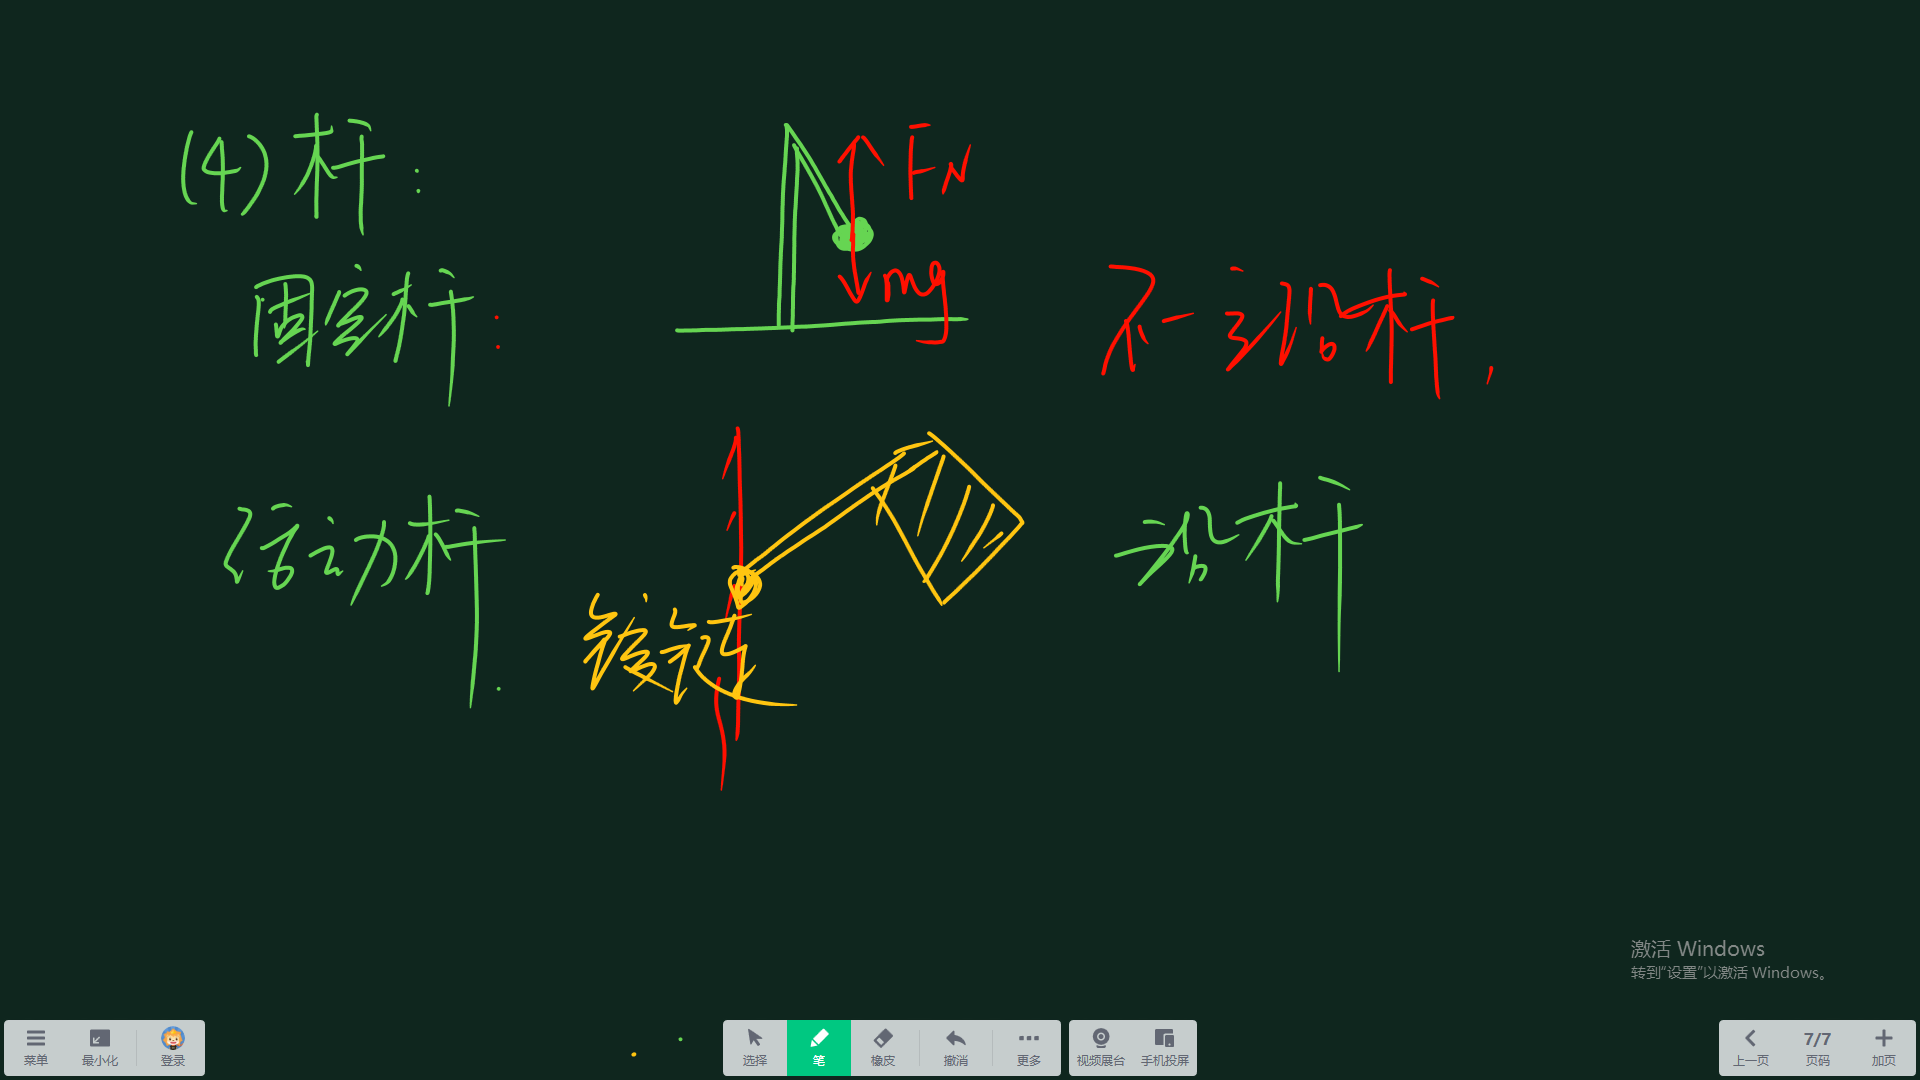 (4) 杆:
FN
mg
固定杆:
不一定沿杆.
活动杆.
沿杆
铰链
激活 Windows
转到“设置”以激活 Windows。
菜单 最小化 登录 选择 笔 橡皮 撤消 更多 视频展台 手机投屏 上一页 7/7 页码 加页